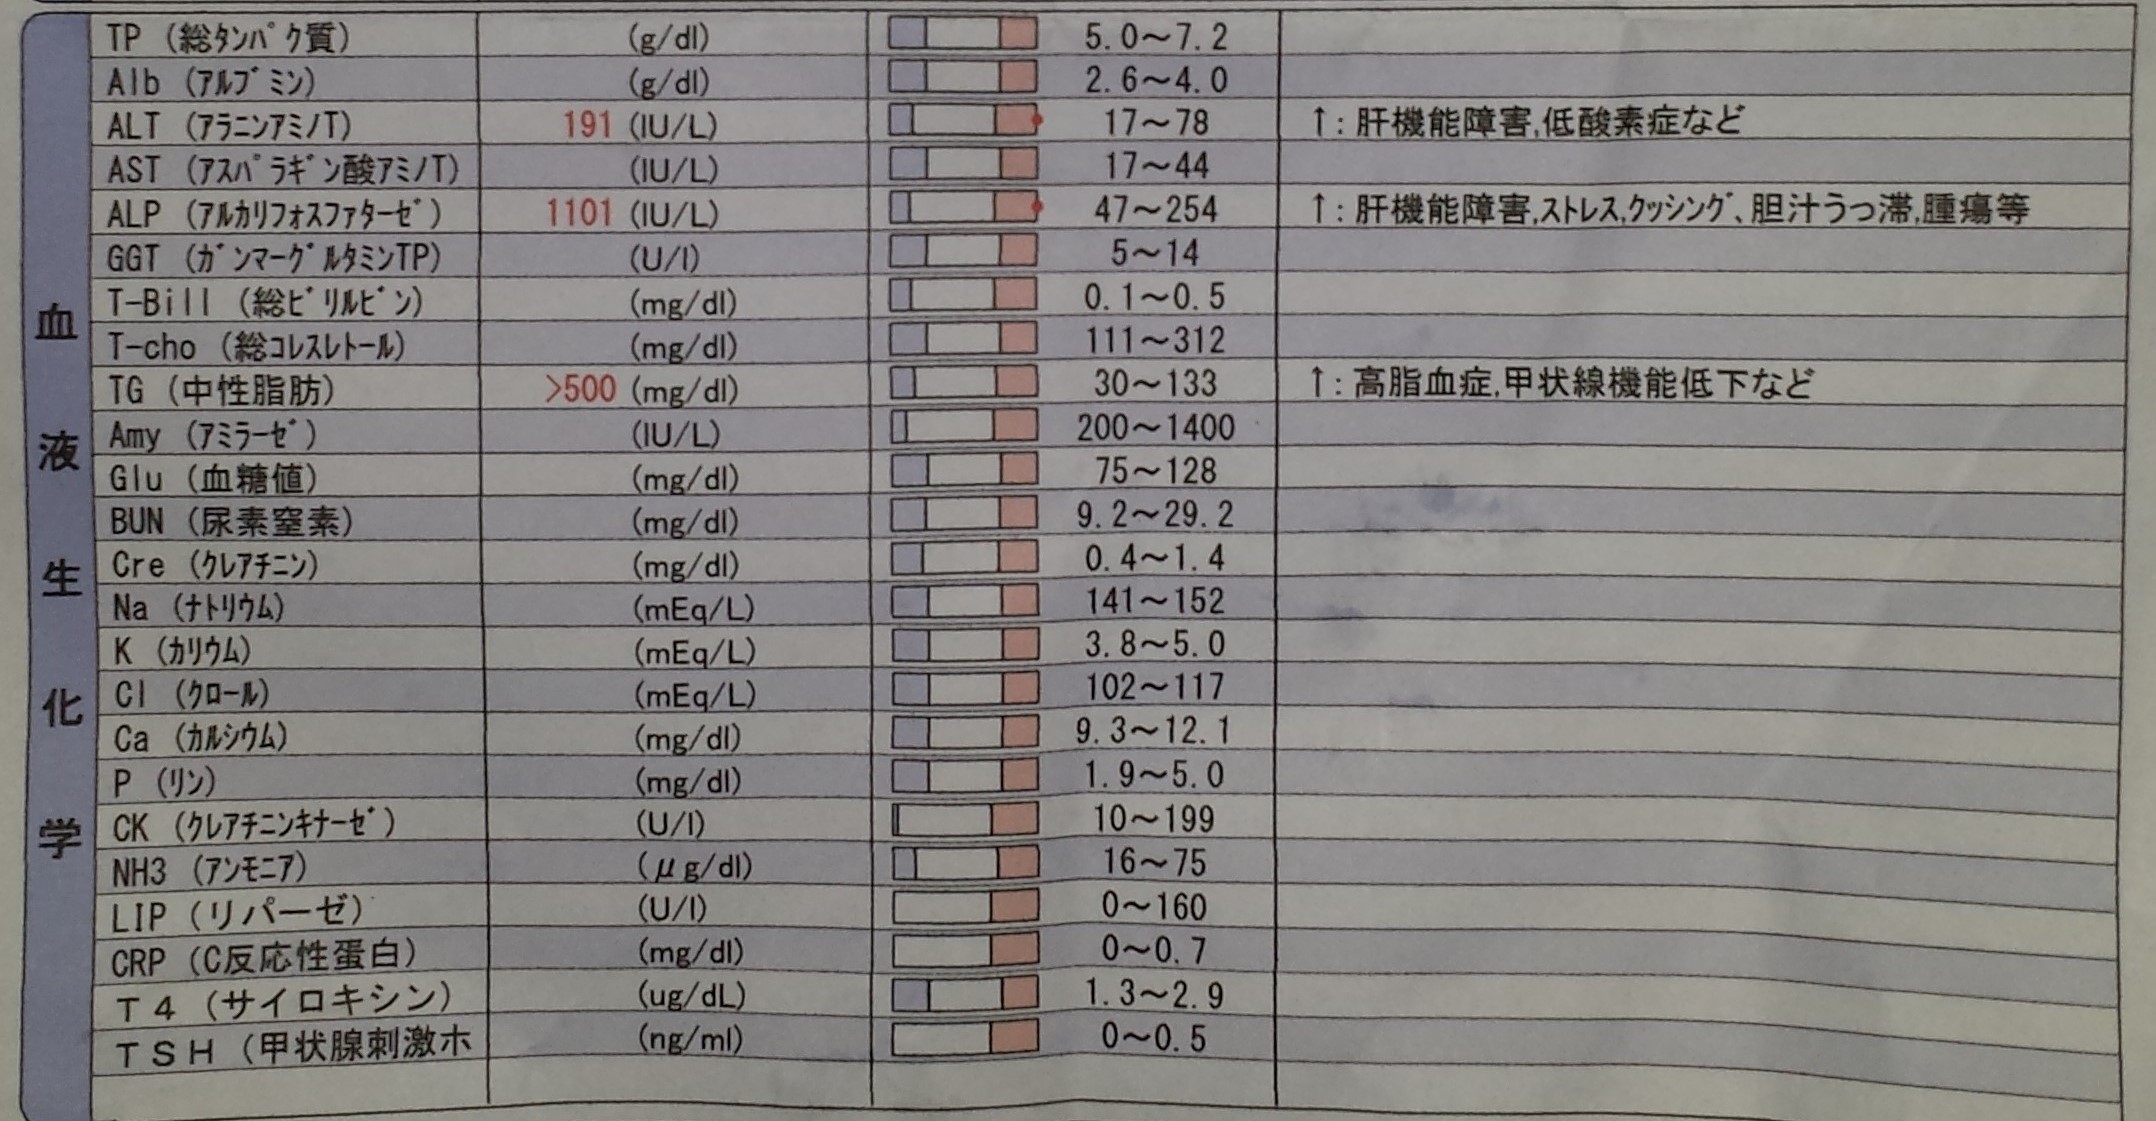 血液生化学
TP (総ﾀﾝﾊﾟｸ質) (g/dl) 5.0～7.2
Alb (ｱﾙﾌﾞﾐﾝ) (g/dl) 2.6～4.0
ALT (ｱﾗﾆﾝｱﾐﾉT) 191 (IU/L) 17～78 ↑:肝機能障害,低酸素症など
AST (ｱｽﾊﾟﾗｷﾞﾝ酸ｱﾐﾉT) (IU/L) 17～44
ALP (ｱﾙｶﾘﾌｫｽﾌｧﾀｰｾﾞ) 1101 (IU/L) 47～254 ↑:肝機能障害,ｽﾄﾚｽ,ｸｯｼﾝｸﾞ､胆汁うっ滞,腫瘍等
GGT (ｶﾞﾝﾏｰｸﾞﾙﾀﾐﾝTP) (U/l) 5～14
T-Bill (総ﾋﾞﾘﾙﾋﾞﾝ) (mg/dl) 0.1～0.5
T-cho (総ｺﾚｽﾚﾄｰﾙ) (mg/dl) 111～312
TG (中性脂肪) >500 (mg/dl) 30～133 ↑:高脂血症,甲状線機能低下など
Amy (ｱﾐﾗｰｾﾞ) (IU/L) 200～1400
Glu (血糖値) (mg/dl) 75～128
BUN (尿素窒素) (mg/dl) 9.2～29.2
Cre (ｸﾚｱﾁﾆﾝ) (mg/dl) 0.4～1.4
Na (ﾅﾄﾘｳﾑ) (mEq/L) 141～152
K (ｶﾘｳﾑ) (mEq/L) 3.8～5.0
Cl (ｸﾛｰﾙ) (mEq/L) 102～117
Ca (ｶﾙｼｳﾑ) (mg/dl) 9.3～12.1
P (ﾘﾝ) (mg/dl) 1.9～5.0
CK (ｸﾚｱﾁﾆﾝｷﾅｰｾﾞ) (U/l) 10～199
NH3 (ｱﾝﾓﾆｱ) (μg/dl) 16～75
LIP (リパーゼ) (U/l) 0～160
CRP (C反応性蛋白) (mg/dl) 0～0.7
Ｔ４ (サイロキシン) (ug/dL) 1.3～2.9
ＴＳＨ (甲状腺刺激ホ (ng/ml) 0～0.5